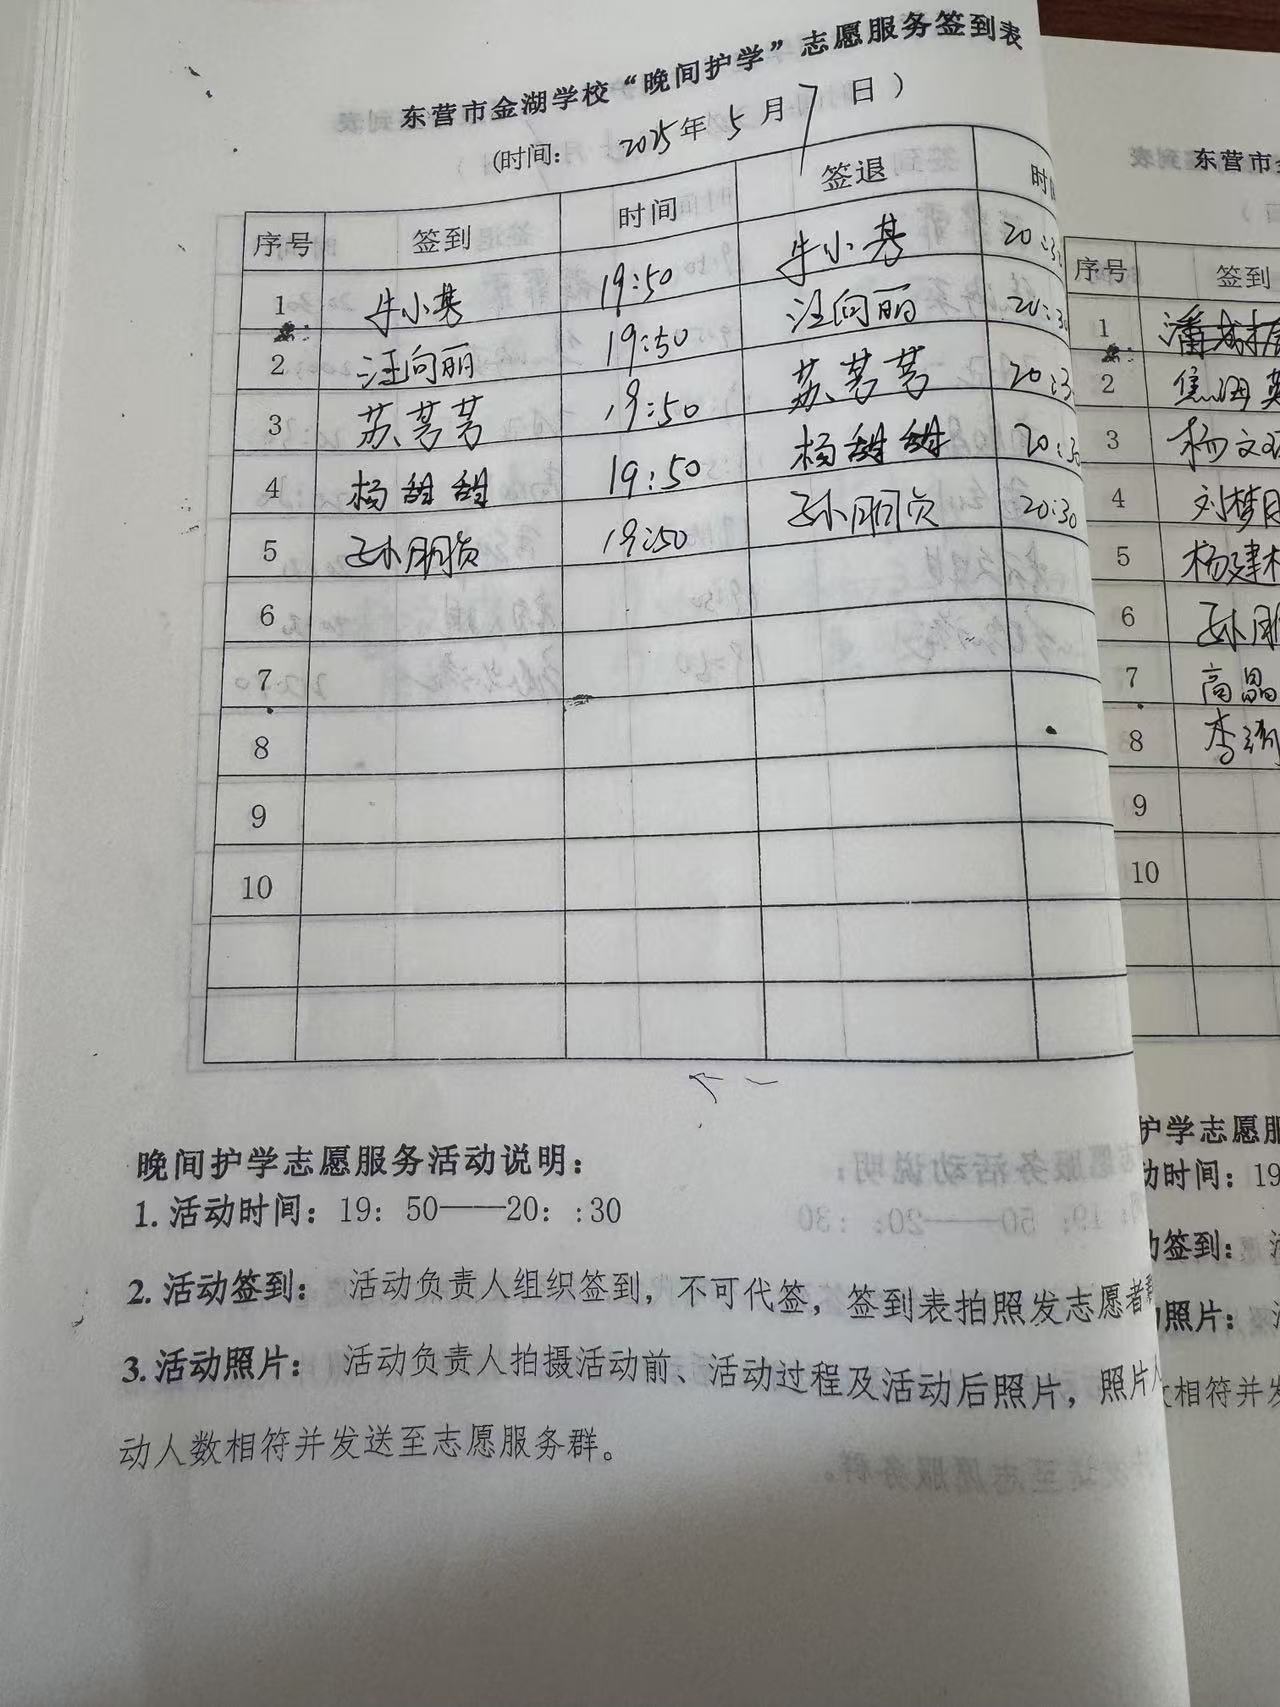 东营市金湖学校“晚间护学”志愿服务签到表
(时间： 2025年 5 月 7 日 )
序号 签到 时间 签退 时
1 牛小燕 19:50 牛小燕 20:3
2 汪向丽 19:50 汪向丽 20:30
3 苏茗茗 19:50 苏茗茗 20:3
4 杨甜甜 19:50 杨甜甜 20:30
5 孙朋贞 19:50 孙朋贞 20:30
6
7
8
9
10
晚间护学志愿服务活动说明：
1. 活动时间：19：50——20：:30
2. 活动签到： 活动负责人组织签到，不可代签，签到表拍照发志愿者
3. 活动照片： 活动负责人拍摄活动前、活动过程及活动后照片，照片
动人数相符并发送至志愿服务群。
东营市
序号 签到
1
2 焦海英
3 杨文
4 刘梦
5 杨建
6 孙朋
7 高晶
8 李
9
10
护学志愿服
动时间：19
签到：
照片：
相符并发